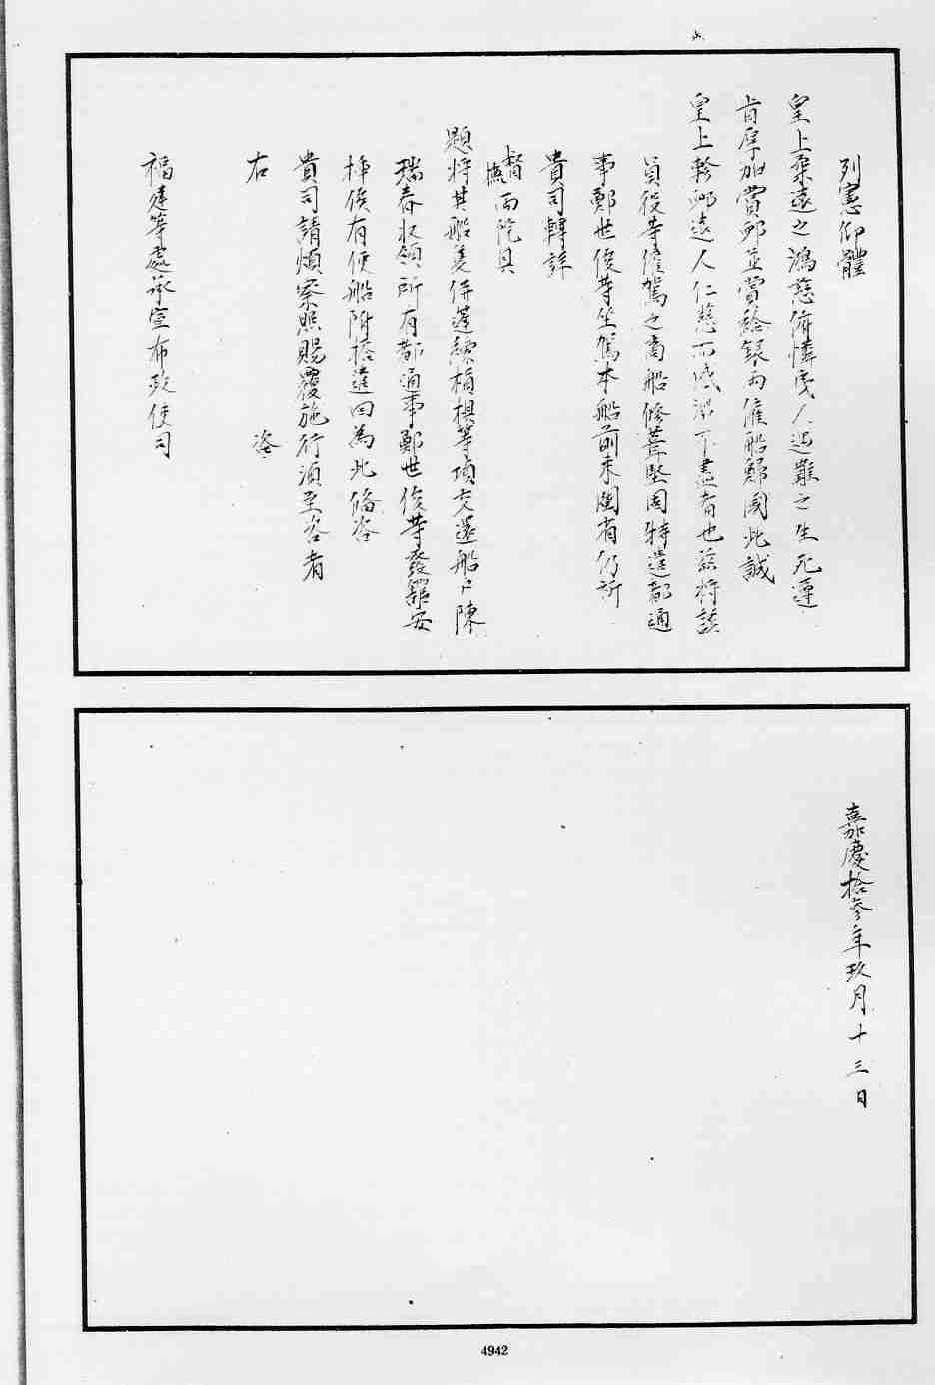 列憲仰體
皇上柔遠之鴻慈俯憐曳人遇難之生死遵
旨厚加賞卹並賞給銀両僱船歸國此誠
皇上軫卹遠人仁慈而感深下盡者也茲將該
員役等僱駕之商船修葺堅固特遣都通
事鄭世俊等坐駕本船前來閩省仍祈
貴司轉詳
督撫両院具
題將其船隻併蓬索槓椇等項交還船戶陳
瑞春收領所有都通事鄭世俊等發舘安
挿俟有便船附搭遣回為此俻咨
貴司請煩察照賜覆施行須至咨者
右
咨
福建等處承宣布政使司
嘉慶拾叁年玖月十三日
4942